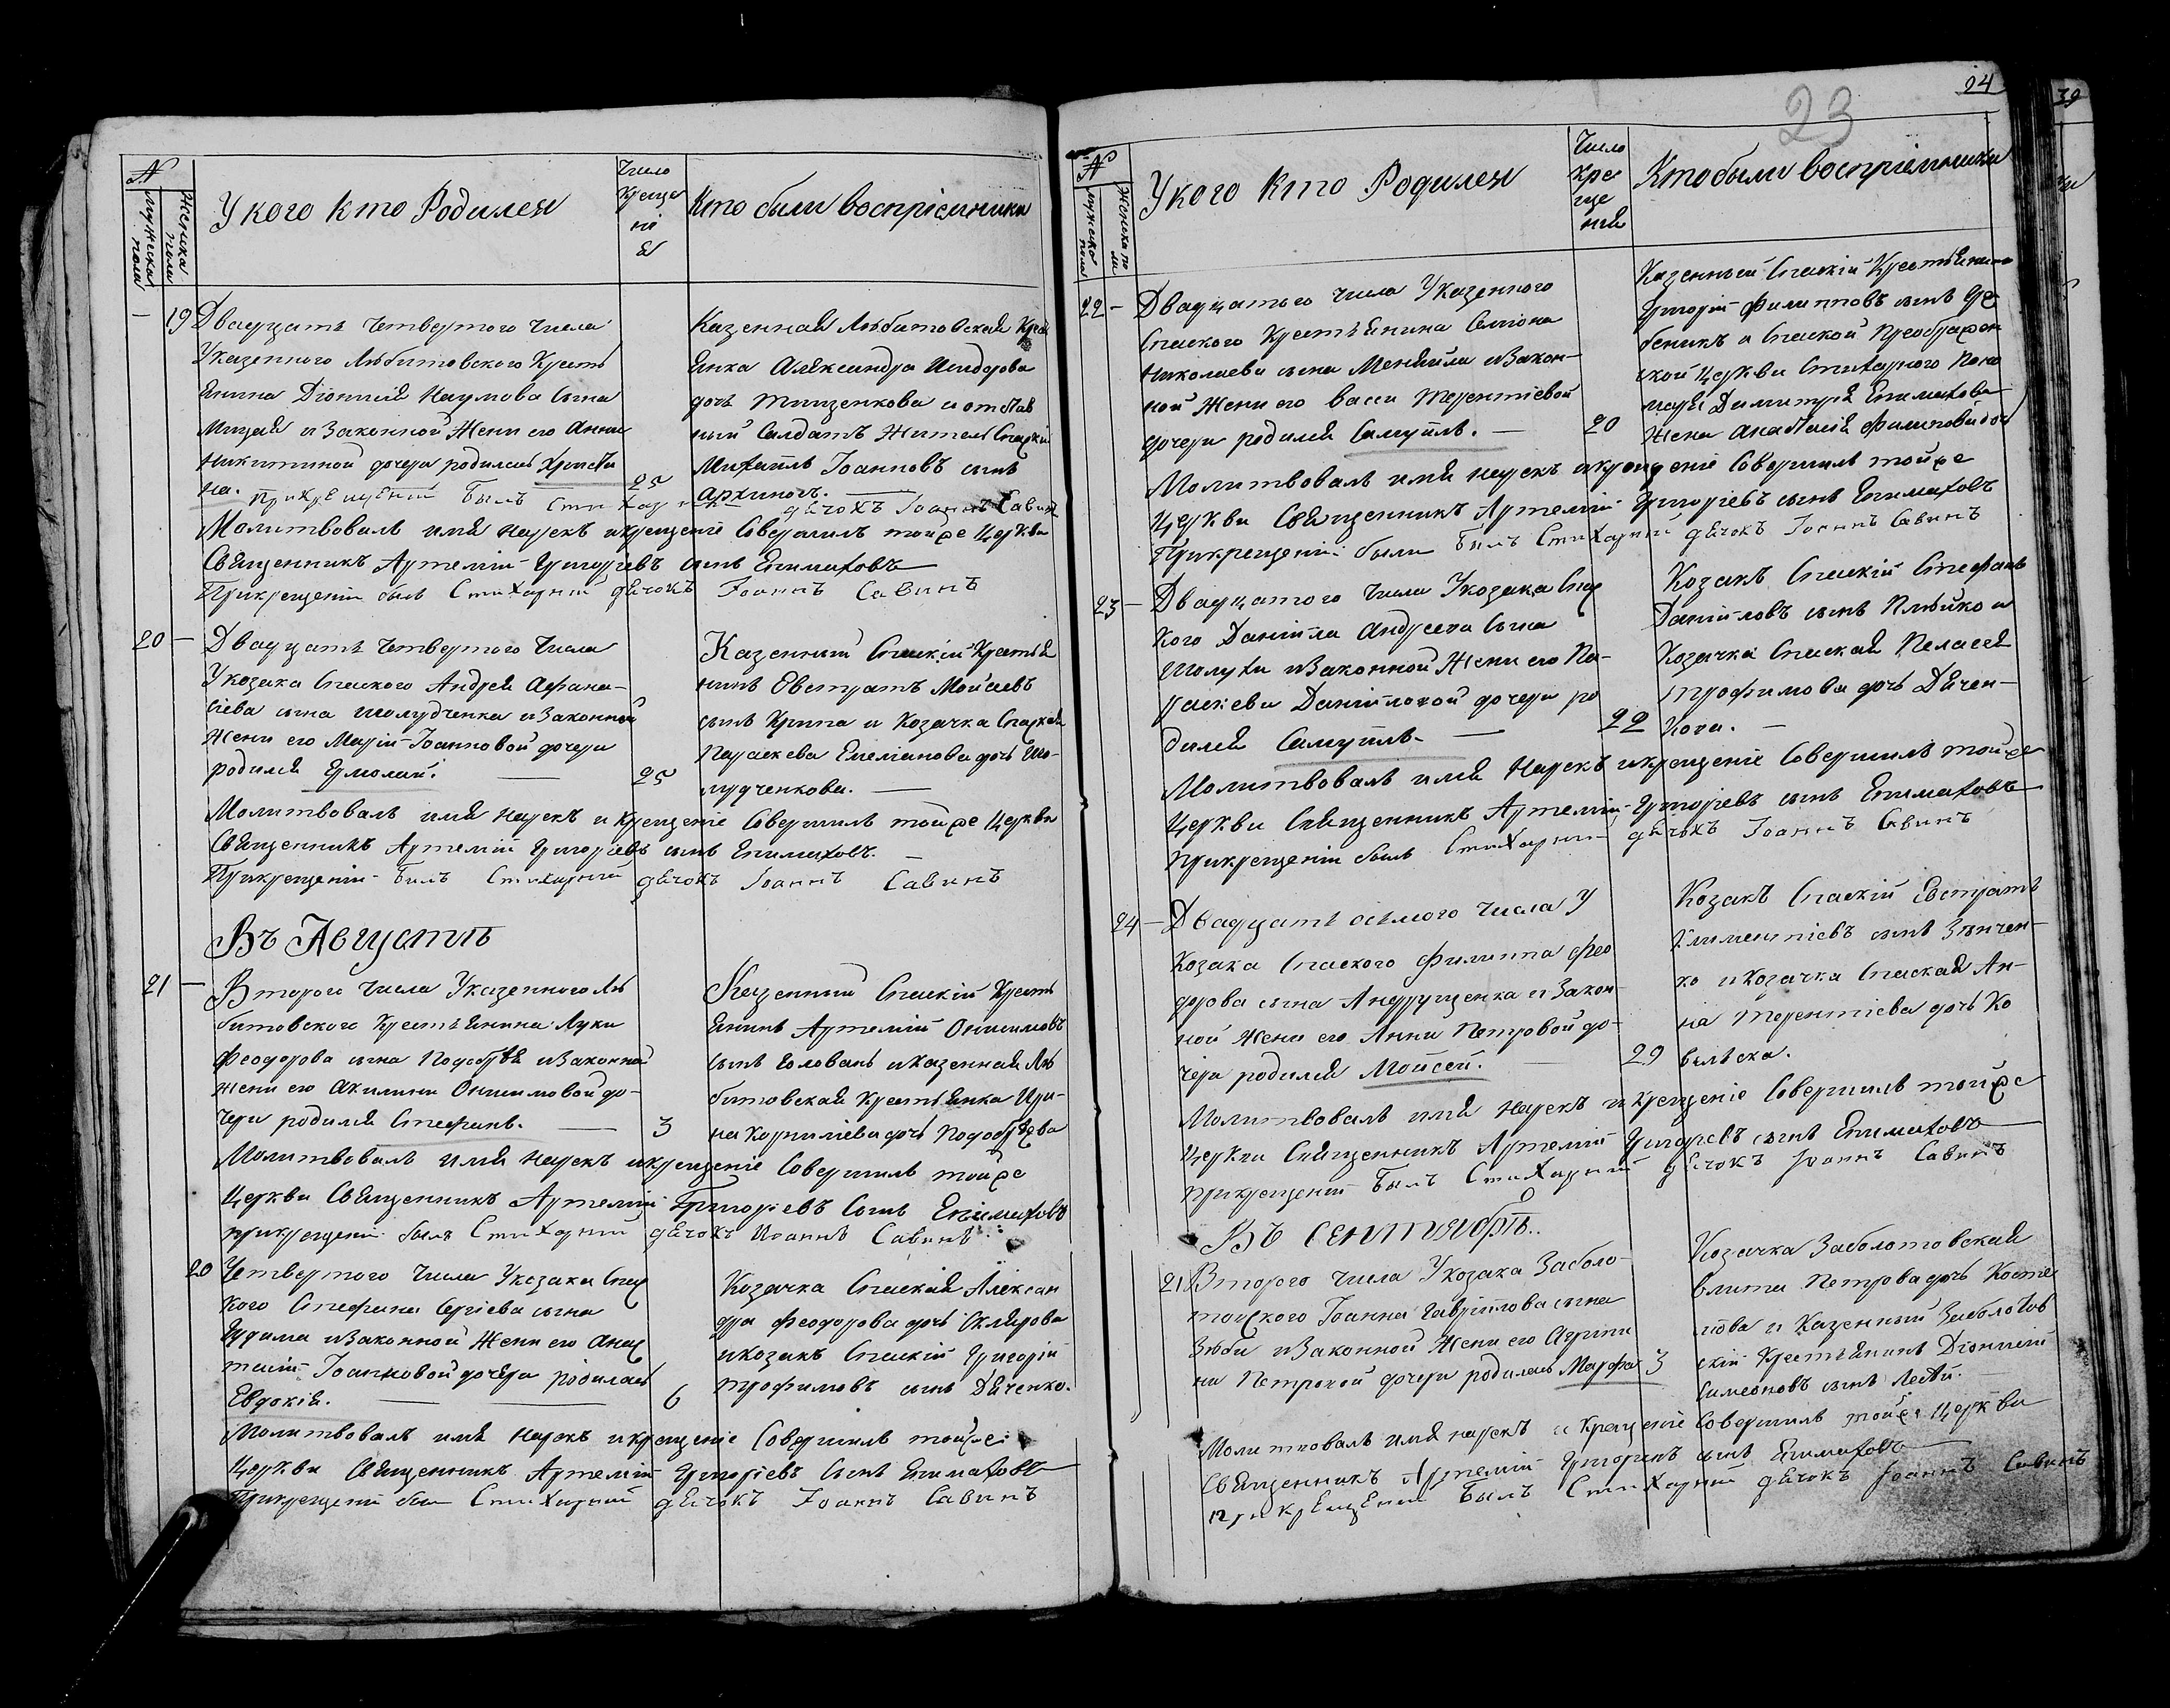 №
Мужеска пола
Женска пола
У кого кто Родился
Число
Креще
ні
я
Кто были воспріемники
19 Двадцать четвертого числа
Указенного Любитовского Кресть
янина Діонисія Наумова сына
и Законной Жени его Анни
Никитиной дочери родилась Христи
на.
25
Казенная Любитовская Крес
янка Александра Исидорова
дочь Тищенкова и отстав
ный Салдатъ Жител Спаскій
Михаилъ Іоанновъ сынъ
Архиповъ.
При крещеніи Былъ Стихарний дячокъ Іоаннъ Савин
Молитвовалъ имя нарекъ и крещеніе Совершилъ тойже Церкви
Священникъ Артемій Григоріевъ сынъ Епимаховъ
При крещеніи былъ Стихарний дячокъ Іоаннъ Савинъ
20 Двадцать четвертого числа
У козака Спаского Андрея Афана-
сіева сына Шолудченка и Законной
Жени его Маріи Іоанновой дочери
родился Ермолай.
25
Казенний Спаскій Крестья
нинъ Евстратъ Мойсіевъ
сынъ Крипа и Козачка Спаская
Параскева Емеліанова дочь Шо-
лудченкова.
Молитвовалъ имя нарекъ и Крещеніе Совершилъ тойже Церкви
Священникъ Артемій Григоріевъ сынъ Епимаховъ.
При крещеніи Былъ Стихарний дячокъ Іоаннъ Савинъ
Въ Августѣ
21 Второго числа Указенного Лю
битовского Крестьянина Луки
Феодорова сына и Законной
жени его Акилини Онисимовой до-
чери родился Стефанъ.
3
Казенний Спаскій Кресть
янинъ Артемій Онисимовъ
сынъ Голованъ и Казенная Лю
битовская Крестьянка Ири-
на Корниліева дочь
Молитвовалъ имя нарекъ и крещеніе Совершилъ тойже
Церкви Священникъ Артемій Григоріевъ Сынъ Епимаховъ
при крещеніи былъ Стихарний дячокъ Иоаннъ Савинъ
20 Четвертого числа У козака Спас
кого Стефана Сергіева сына
и Законной Жени его Анас
тасіи Іоанновой дочери родилась
Евдокія.
6
Козачка Спаская Алексан
дра Феодорова дочь Склярова
и козакъ Спаскій Григорій
Трофимовъ сынъ Дяченко.
Молитвовалъ имя нарекъ и крещеніе Совершилъ тойже
Церкви Священникъ Артемій Григоріевъ Сынъ Епимаховъ
При крещеніи был Стихарний дячокъ Іоаннъ Савинъ
23
24
№
Мужеско пола
Женска по ла
У кого кто Родился
Число
Кре
ще
нія
Кто были воспріемники
22 Двадцатого числа Указенного
Спаского Крестьянина Семіона
Николаева сына Меняйла и Закон-
ной Жени его Васси Терентіевой
дочери родился Самуилъ.
20
Казенный Спаскій Крестьянинъ
Григорій Филипповъ сынъ
и Спаской Преображен
ской Церкви Стихарного Поно
маря Димитрія Епимахова
Жена Анастасія Филипова доч
Молитвовалъ имя нарекъ и крещеніе Совершилъ тойже
Церкви Священникъ Артемій Григоріевъ сынъ Епимаховъ
При крещеніи были Былъ Стихарний дячокъ Іоаннъ Савинъ
23 Двадцатого числа У козака Спас
кого Даніила Андреева Сына
Шолухи и Законной Жени его Па-
раскеви Даніиловой дочери ро
дился Самуилъ.
22
Козакъ Спаскій Стефанъ
Даніиловъ сынъ и
Козачка Спаская Пелагея
Трофимова дочь Дячен-
кова.
Молитвовалъ имя Нарекъ и крещеніе Совершилъ тойже
Церкви Священникъ Артемій Григоріевъ сынъ Епимаховъ
При крещеніи былъ Стихарний дячокъ Іоаннъ Савинъ
24 Двадцать осьмого числа У
Козака Спаского Филиппа Фео
дорова сына Андрущенка и Закон-
ной Жени его Анни Петровой до-
чери родился Мойсей.
29
Козакъ Спаскій Евстратъ
Климентіевъ сынъ Зѣнчен-
ко и Козачка Спаская Ан-
на Терентіева дочь Ко
Молитвовалъ имя нарекъ и крещеніе Совершилъ тойже
Церкви Священникъ Артемій Григоріевъ сынъ Епимаховъ
При крещеніи Былъ Стихарний дячокъ Іоаннъ Савинъ
Въ Сентябрѣ.
21 Второго числа У козака Заболо-
товского Іоанна Гавріилова сына
Зюби и Законной Жени его Агрипи
ни Петровой дочери родилась Марфа
3
Козачка Заболотовская
Петрова дочь
и Казенный Заболотов
скій Крестьянинъ Діонисій
Симеоновъ сынъ
Молитвовалъ имя нарекъ и Крещеніе Совершилъ тойже Церкви
Священникъ Артемій Григоріевъ сынъ Епимаховъ
при крещеніи Былъ Стихарний дячокъ Іоаннъ Савинъ
39